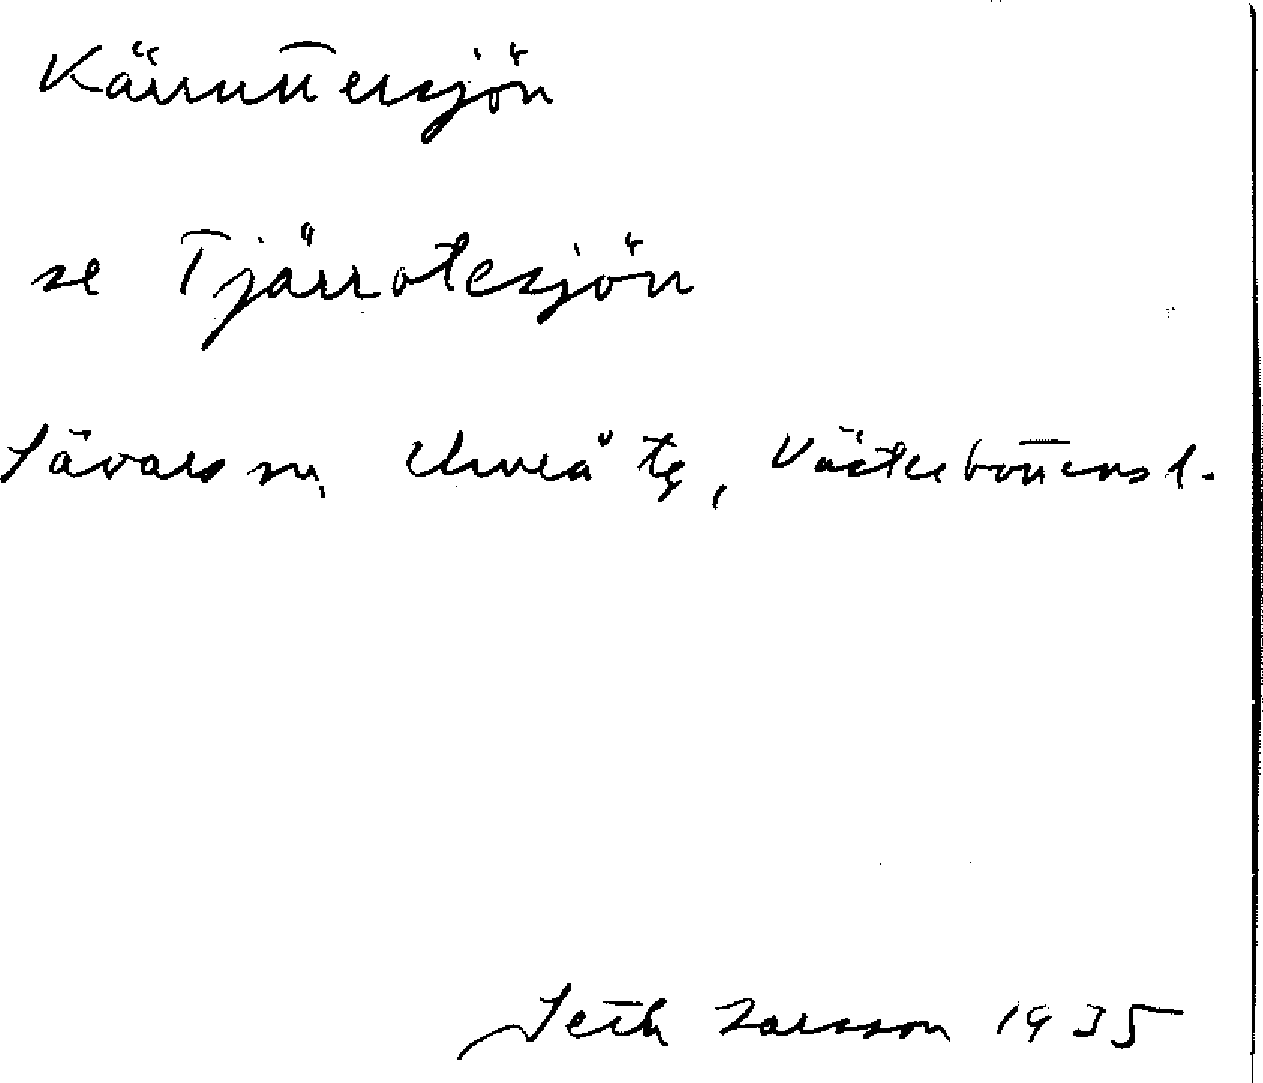 Kärruttersjön
se Tjärrotesjön
Sävars sn, Umeå tg, Västerbottens l.
Seth Larsson 1935